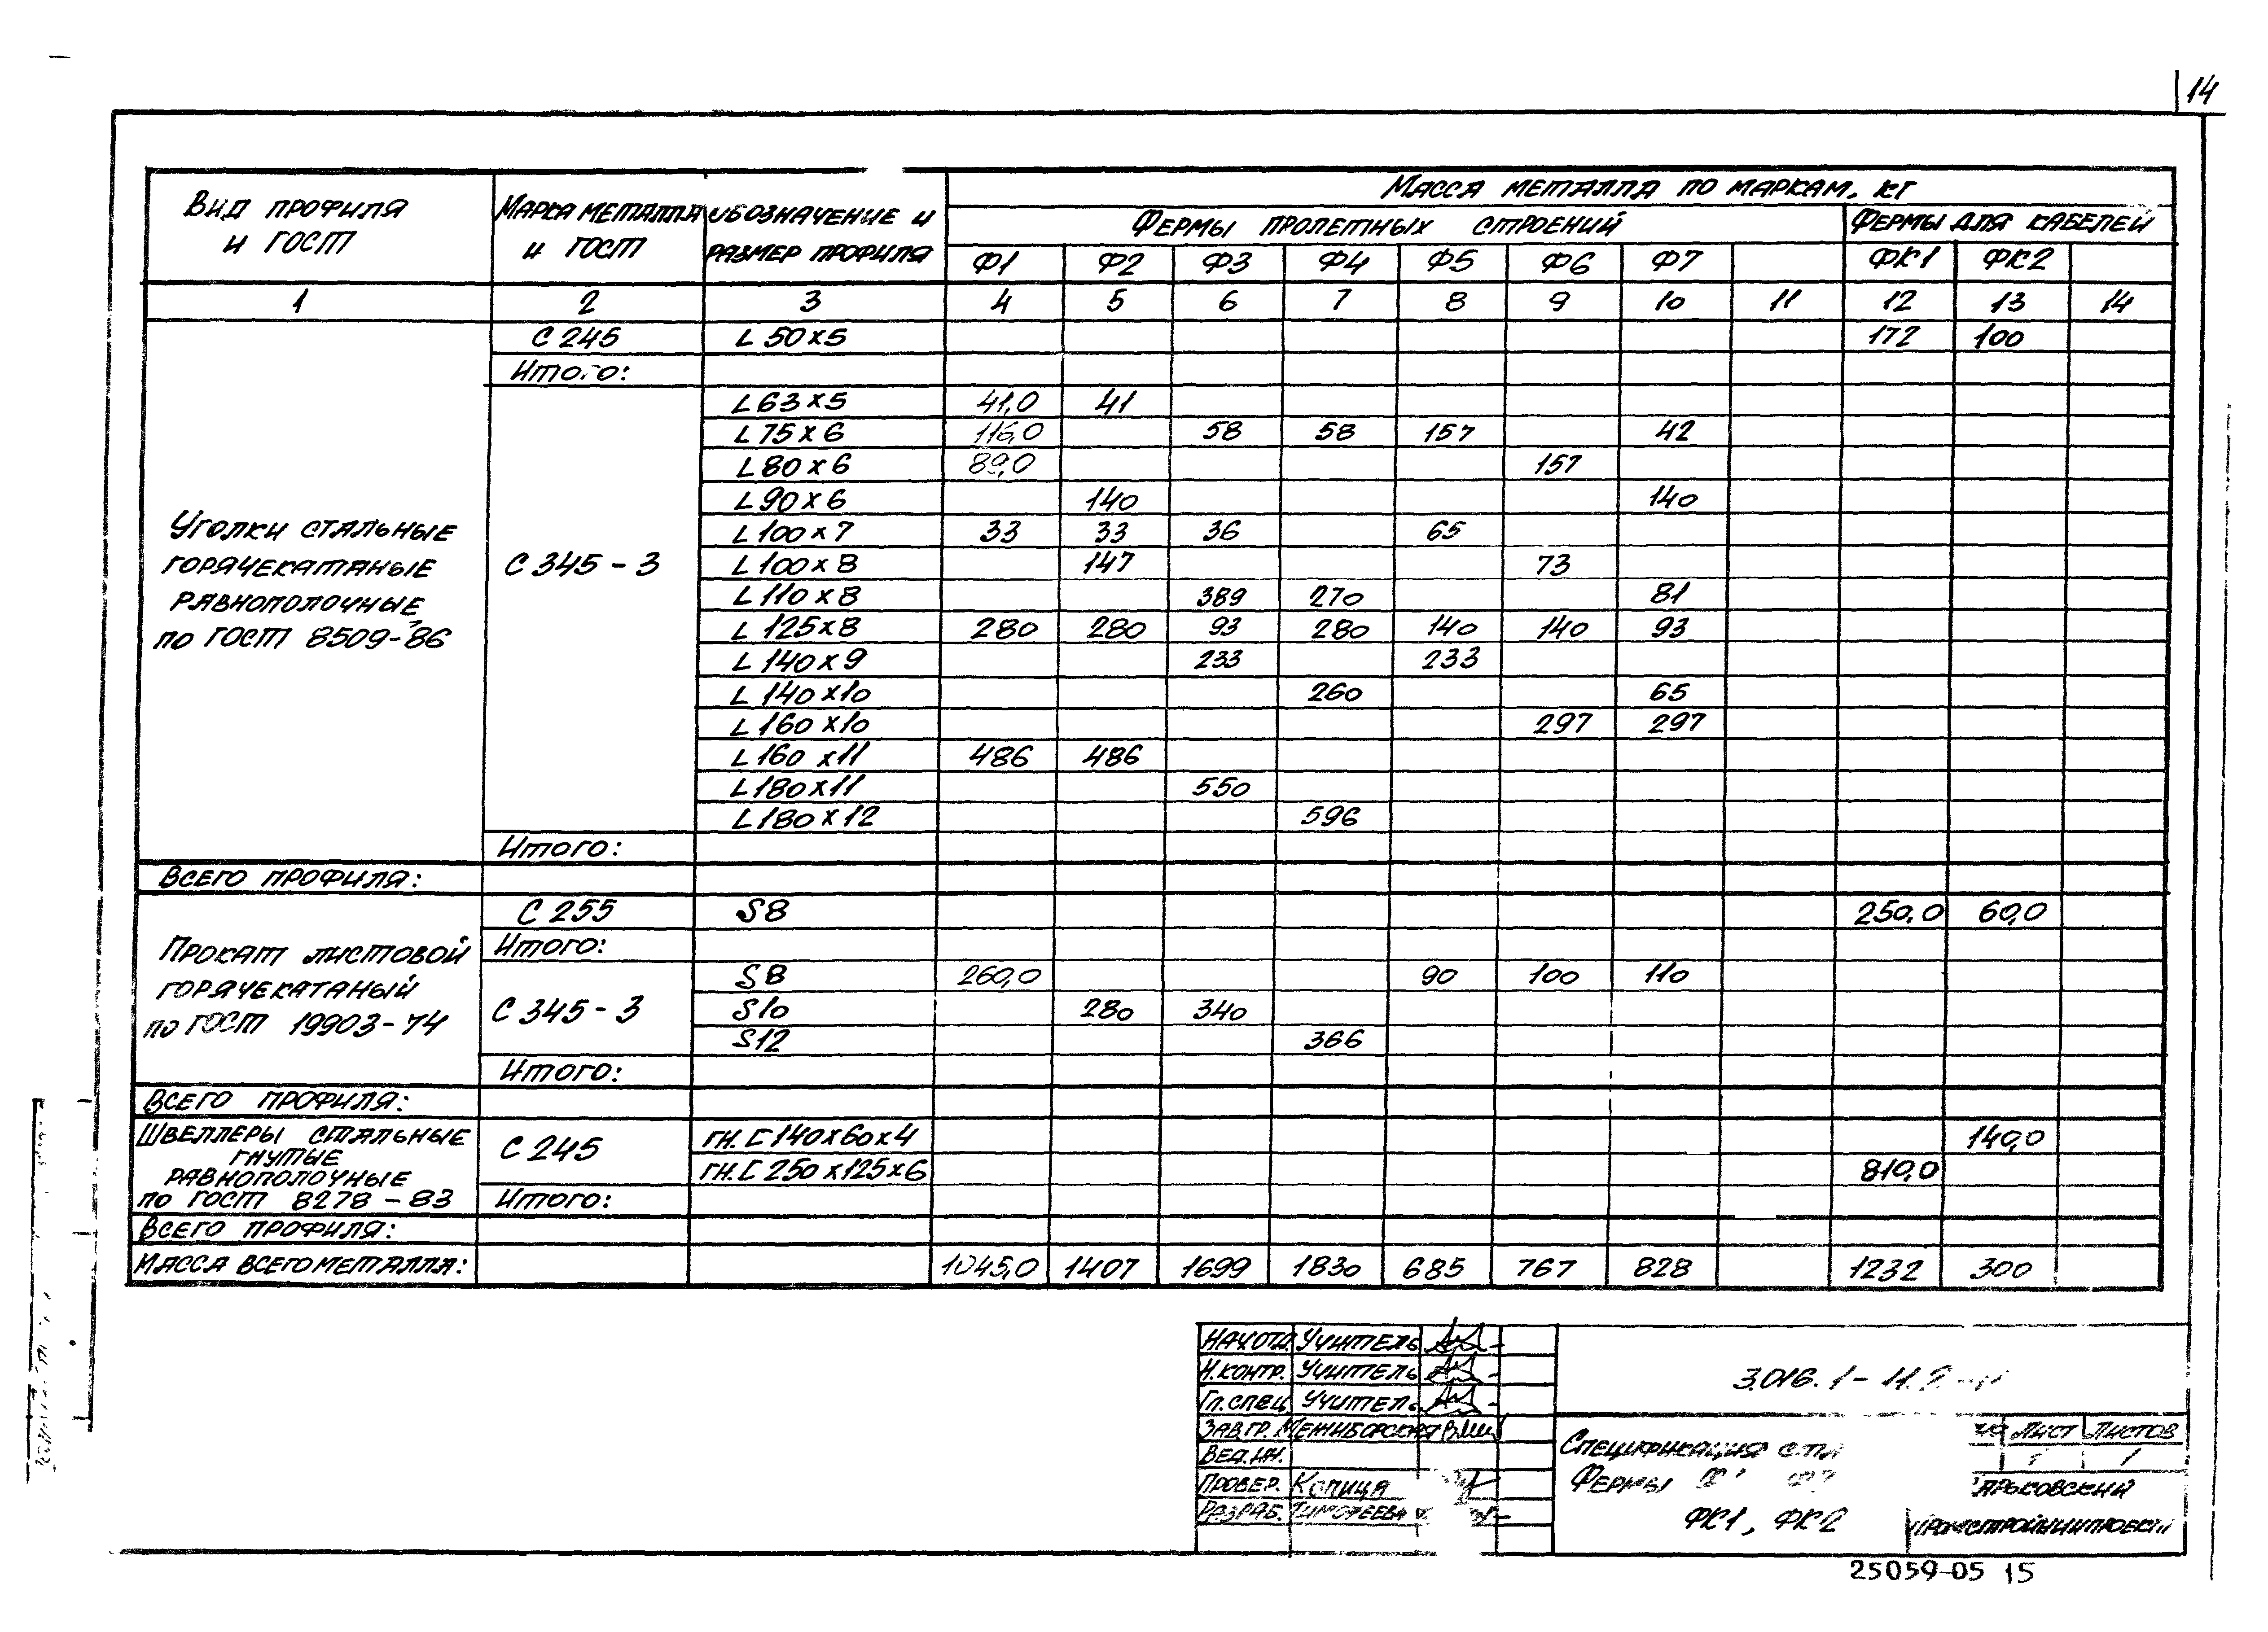 14
Вид профиля и ГОСТ
Марка металла и ГОСТ
Обозначение и размер профиля
Масса металла по маркам, кг
Фермы пролетных строений
Фермы для кабелей
Ф1 Ф2 Ф3 Ф4 Ф5 Ф6 Ф7 ФК1 ФК2
1 2 3 4 5 6 7 8 9 10 11 12 13 14
Уголки стальные
горячекатаные
равнополочные
по ГОСТ 8509-86
С 245 L 50х5 172 100
Итого:
С 345-3
L 63х5 41,0 41
L 75х6 116,0 58 58 157 42
L 80х6 89,0 157
L 90х6 140 140
L 100х7 33 33 36 65
L 100х8 147 73
L 110х8 389 270 81
L 125х8 280 280 93 280 140 140 93
L 140х9 233 233
L 140х10 260 65
L 160х10 297 297
L 160х11 486 486
L 180х11 550
L 180х12 596
Итого:
Всего профиля:
Прокат листовой
горячекатаный
по ГОСТ 19903-74
С 255 S8 250,0 60,0
Итого:
С 345-3
S8 260,0 90 100 110
S10 280 340
S12 366
Итого:
Всего профиля:
Швеллеры стальные
гнутые
равнополочные
по ГОСТ 8278-83
С 245
гн.[ 140х60х4 140,0
гн.[ 250х125х6 810,0
Итого:
Всего профиля:
Масса всего металла: 1045,0 1407 1699 1830 685 767 828 1232 300
Нач.отд. Учитель
Н.контр. Учитель
Гл.спец Учитель
Зав.гр. Межиборская
Вед.ин.
Провер. Копица
Разраб. Тимофеева
3.016.1-11.2
Спецификация
Фермы
ФК1, ФК2
Лист Листов
1
Харьковский
Промстройниипроект
25059-05 15